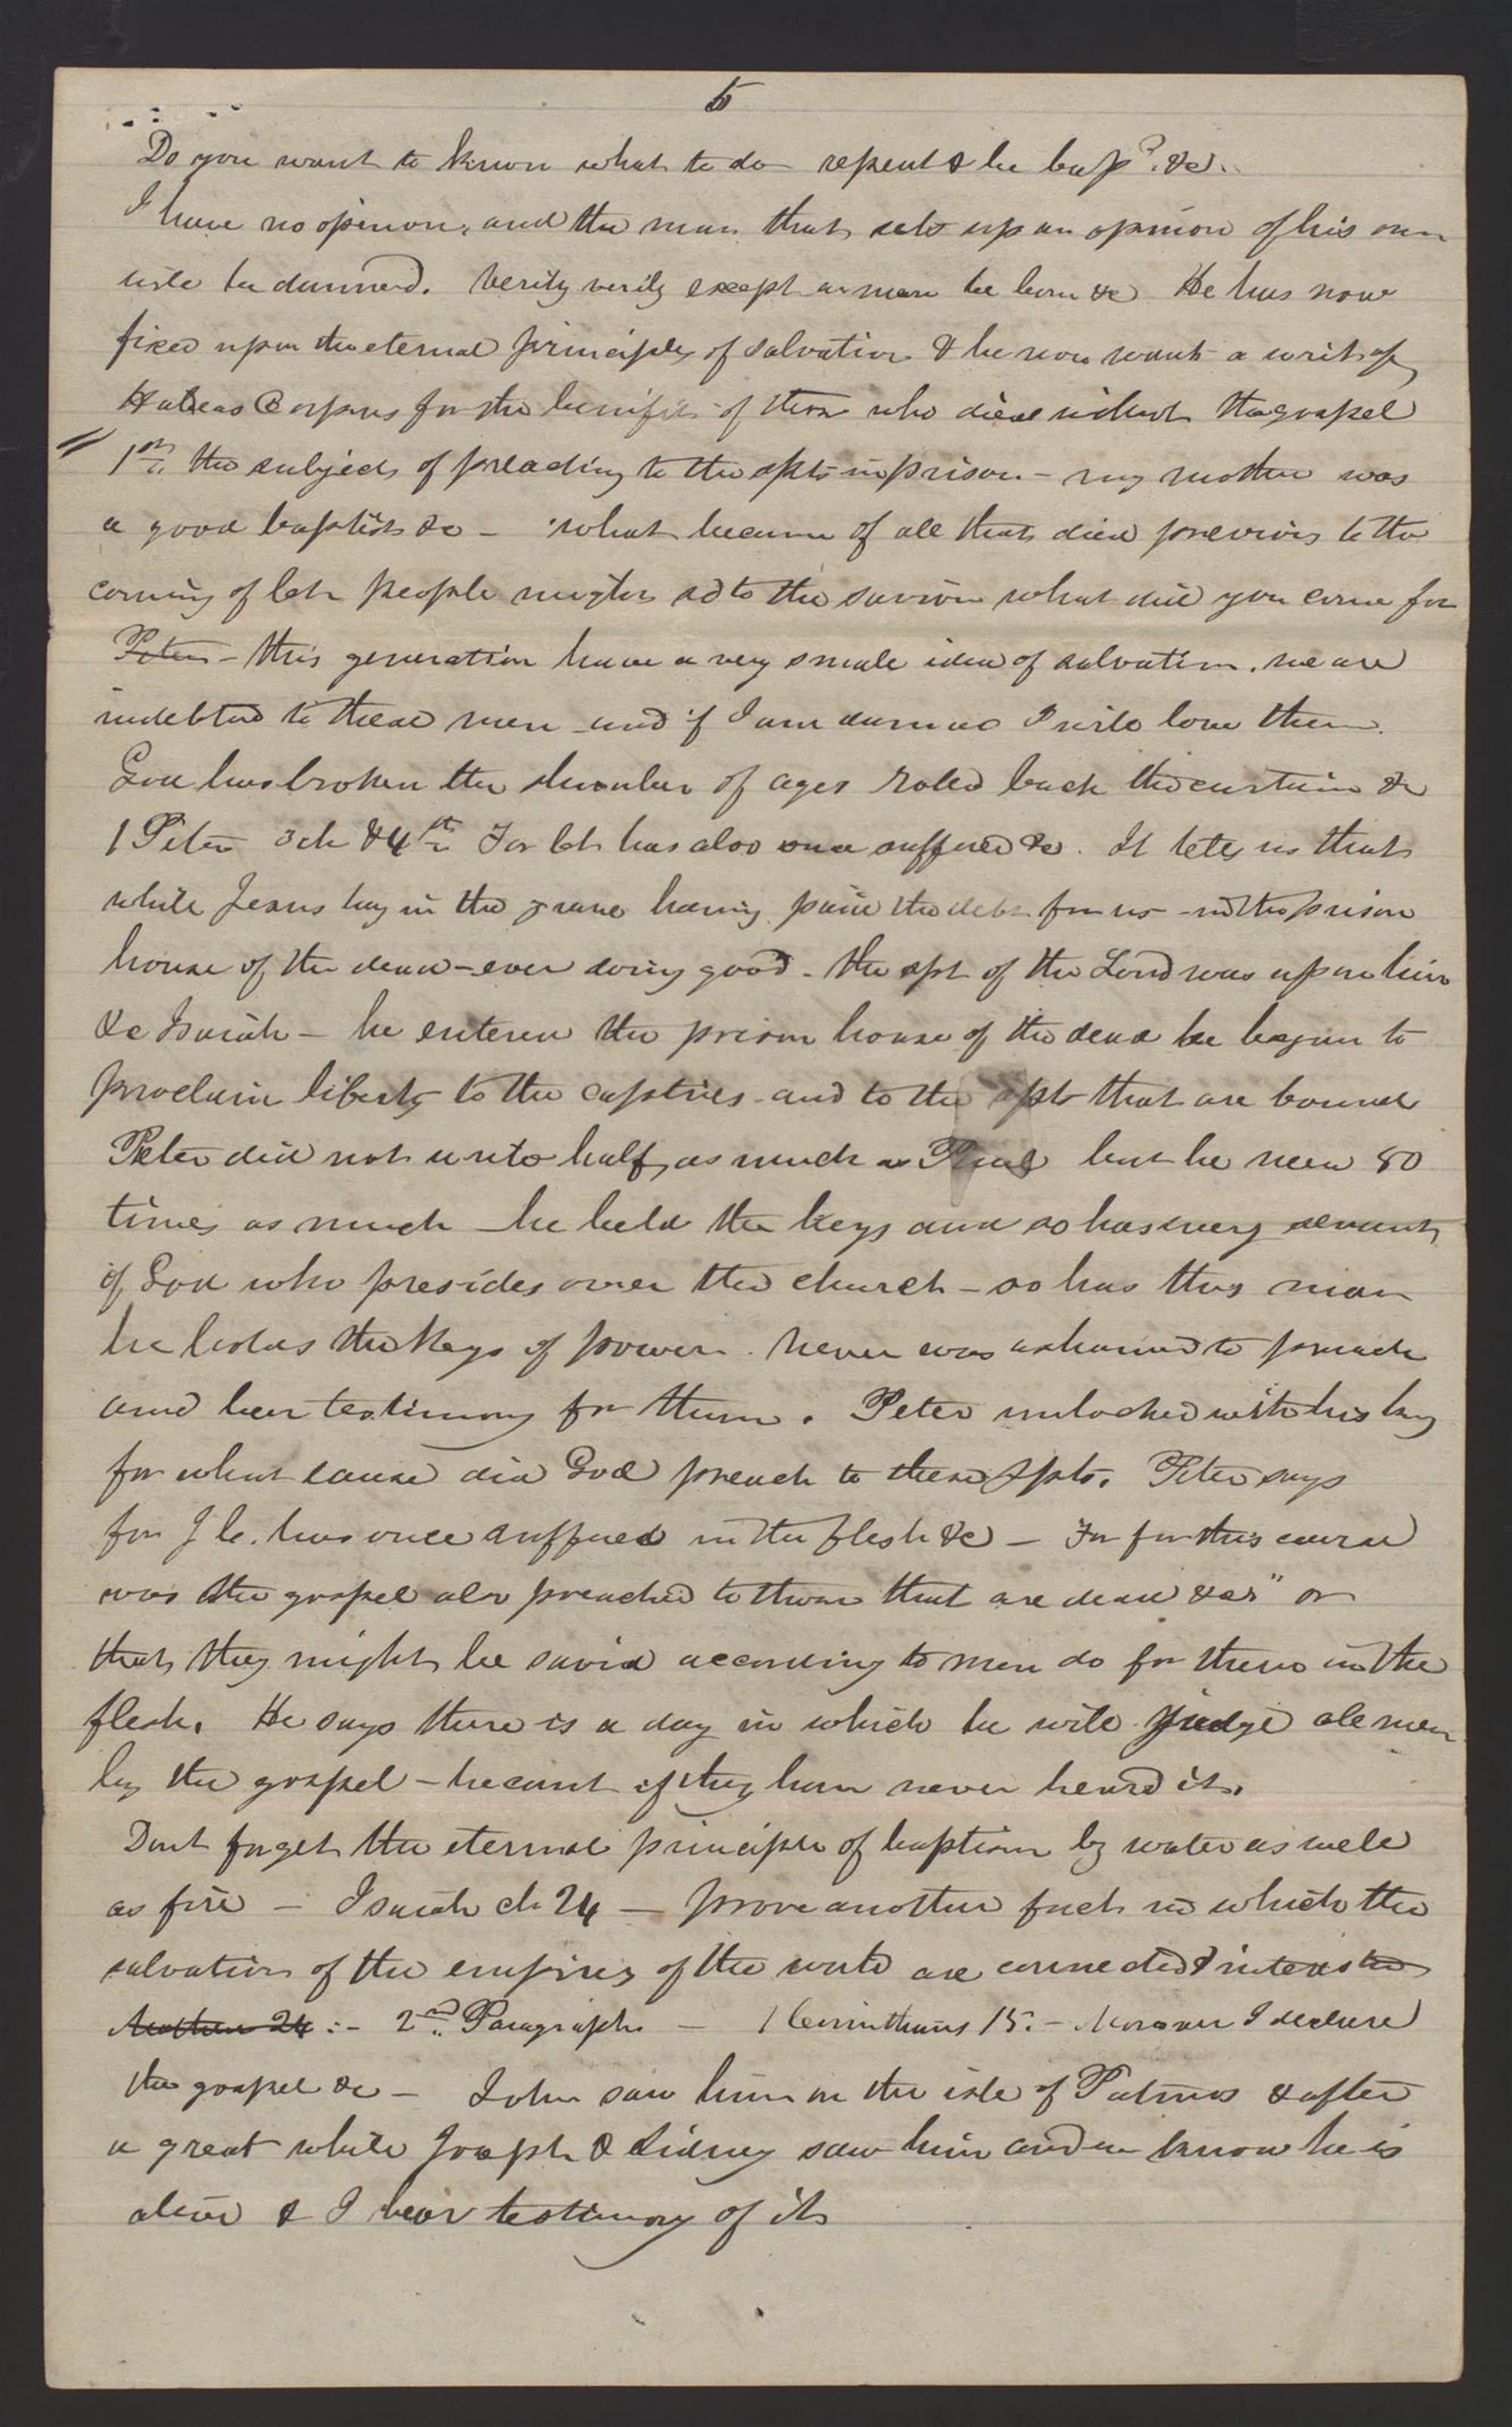 5
Do you want to know what to do repent & be bapd. &c.
I have no opinion, and the man that sets up an opinion of his own
will be damned. Verily verily except a man be born &c He has now
fixed upon the eternal principles of salvation & he now wants a writ of
Habeas Corpus for the benifit of those who died without the gospel
1st. the subject of preaching to the spts in prison - my mother was
a good baptist &c - what became of all that died previous to the
coming of Ch people might sd to the savior what did you come for
Peter - this generation have a very small idea of salvation. we are
indebted to these men and if I am damned I will love them.
God has broken the slumber of ages rolled back the curtain &c
1 Peter 3 ch & 4th For Ch has also once suffered &c. It tells us that
while Jesus lay in the grave having paid the debt for us - in the prison
house of the dead - ever doing good - the spt of the Lord was upon him
&c Isaiah - he entered the prison house of the dead he began to
proclaim liberty to the captives - and to the spts that are bound
Peter did not write half as much as Paul but he knew 50
times as much he held the keys and so has every servant
of God who presides over the church - so has this man
he holds the keys of power. Never was ashamed to preach
and bear testimony for them. Peter unlocked with his key
for what cause did God preach to these spts. Peter says
for J C. has once suffered in the flesh &c - For for this cause
was the gospel also preached to those that are dead &c" or
that they might be saved according to men do for them in the
flesh. He says there is a day in which he will judge all men
by the gospel - he cant if they have never heard it.
Dont forget the eternal principle of baptism by water as well
as fire - Isaiah ch 24 - prove another fact in which the
salvation of the empires of the world are connected & interested
Mathew 24 :- 2nd. Paragraph - 1 Corinthians 15. - Moreover I declare
the gospel &c - John saw him on the isle of Patmos & after
a great while Joseph & Sidney saw him and we know he is
alive & I bear testimony of it